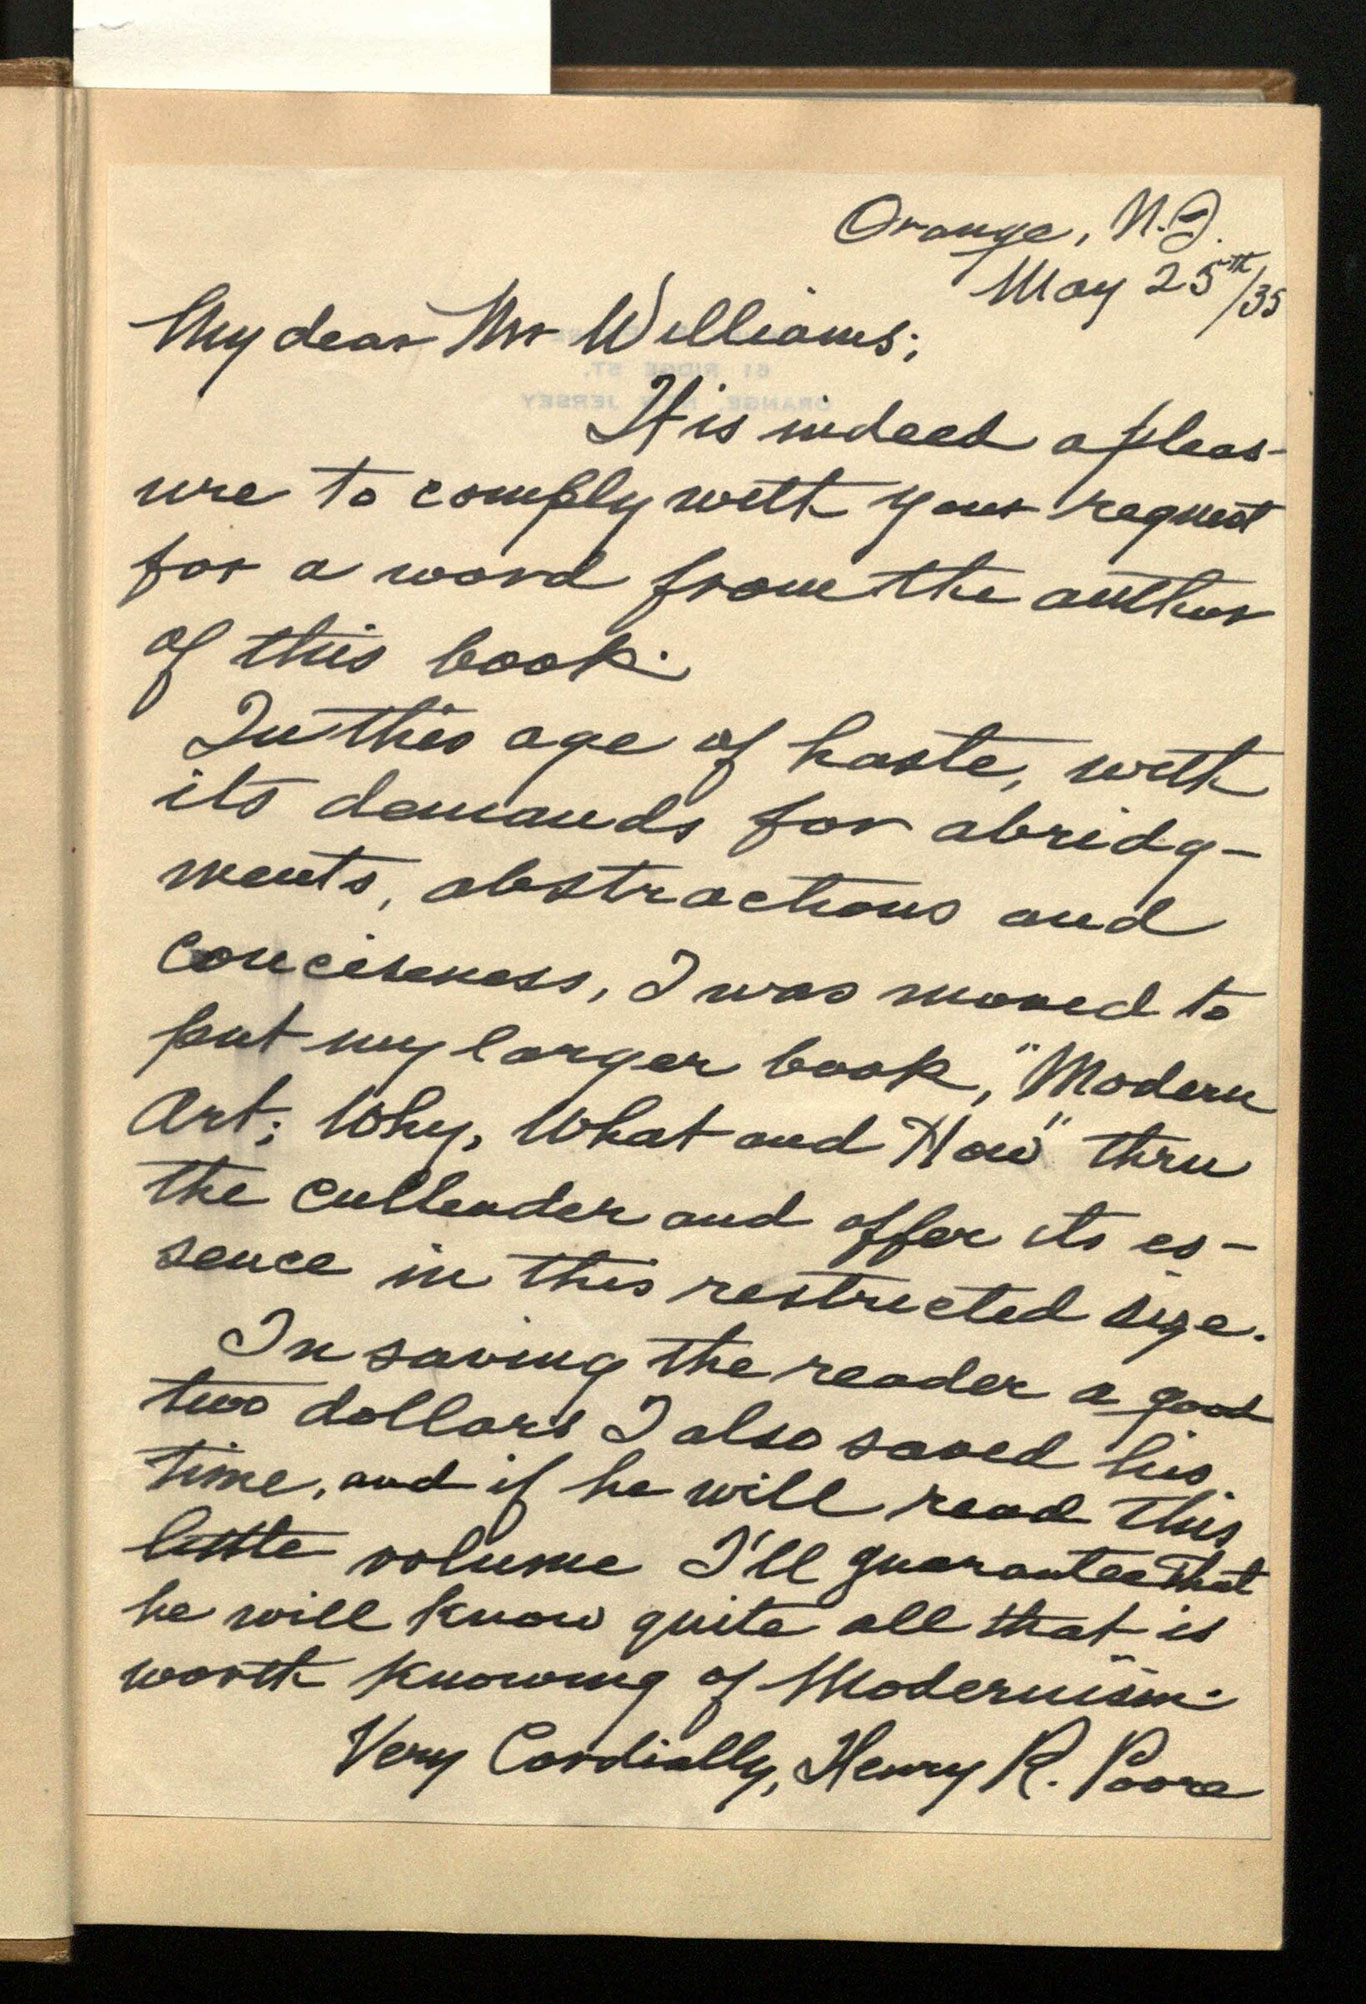 Orange, N.J.
May 25th/35
My dear Mr Williams;
61 RIDGE ST.
ORANGE, NEW JERSEY
It is indeed a pleas-
ure to comply with your request
for a word from the author
of this book.
In this age of haste, with
its demands for abridg-
ments, abstractions and
conciseness, I was moved to
put my larger book, "Modern
Art; Why, What and How" thru
the cullender and offer its es-
sence in this restricted size.
In saving the reader a good
two dollars I also saved his
time, and if he will read this
little volume I'll guarantee that
he will know quite all that is
worth knowing of Modernism.
Very Cordially, Henry R. Poore